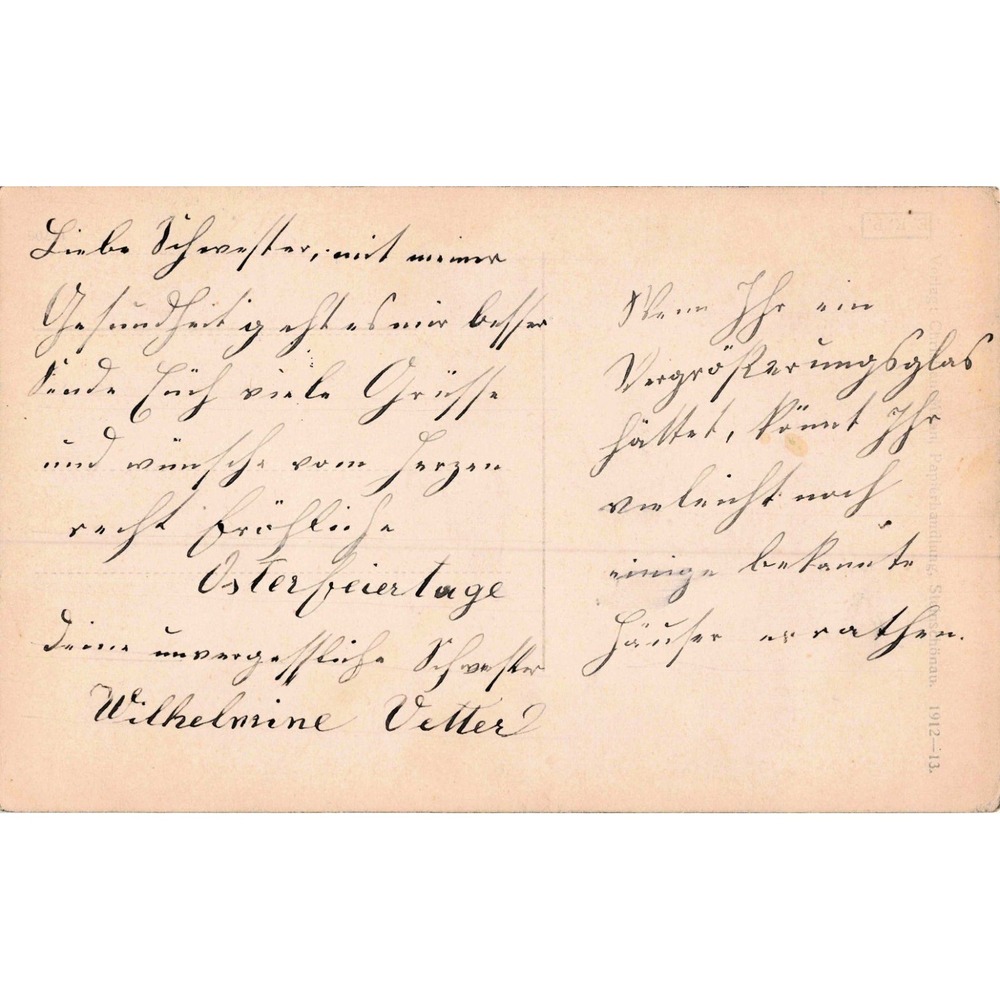 Liebe Schwester, mit meiner
Gesundheit geht es mir besser
Sende Euch viele Grüsse
und wünsche vom Herzen
recht fröhliche
Osterfeiertage
Deine unvergessliche Schwester
Wilhelmine Vetter
Wenn Ihr ein
Vergrößerungsglas
hättet, könnt Ihr
vieleicht noch
einige bekannte
Häuser errathen.
1912—13.